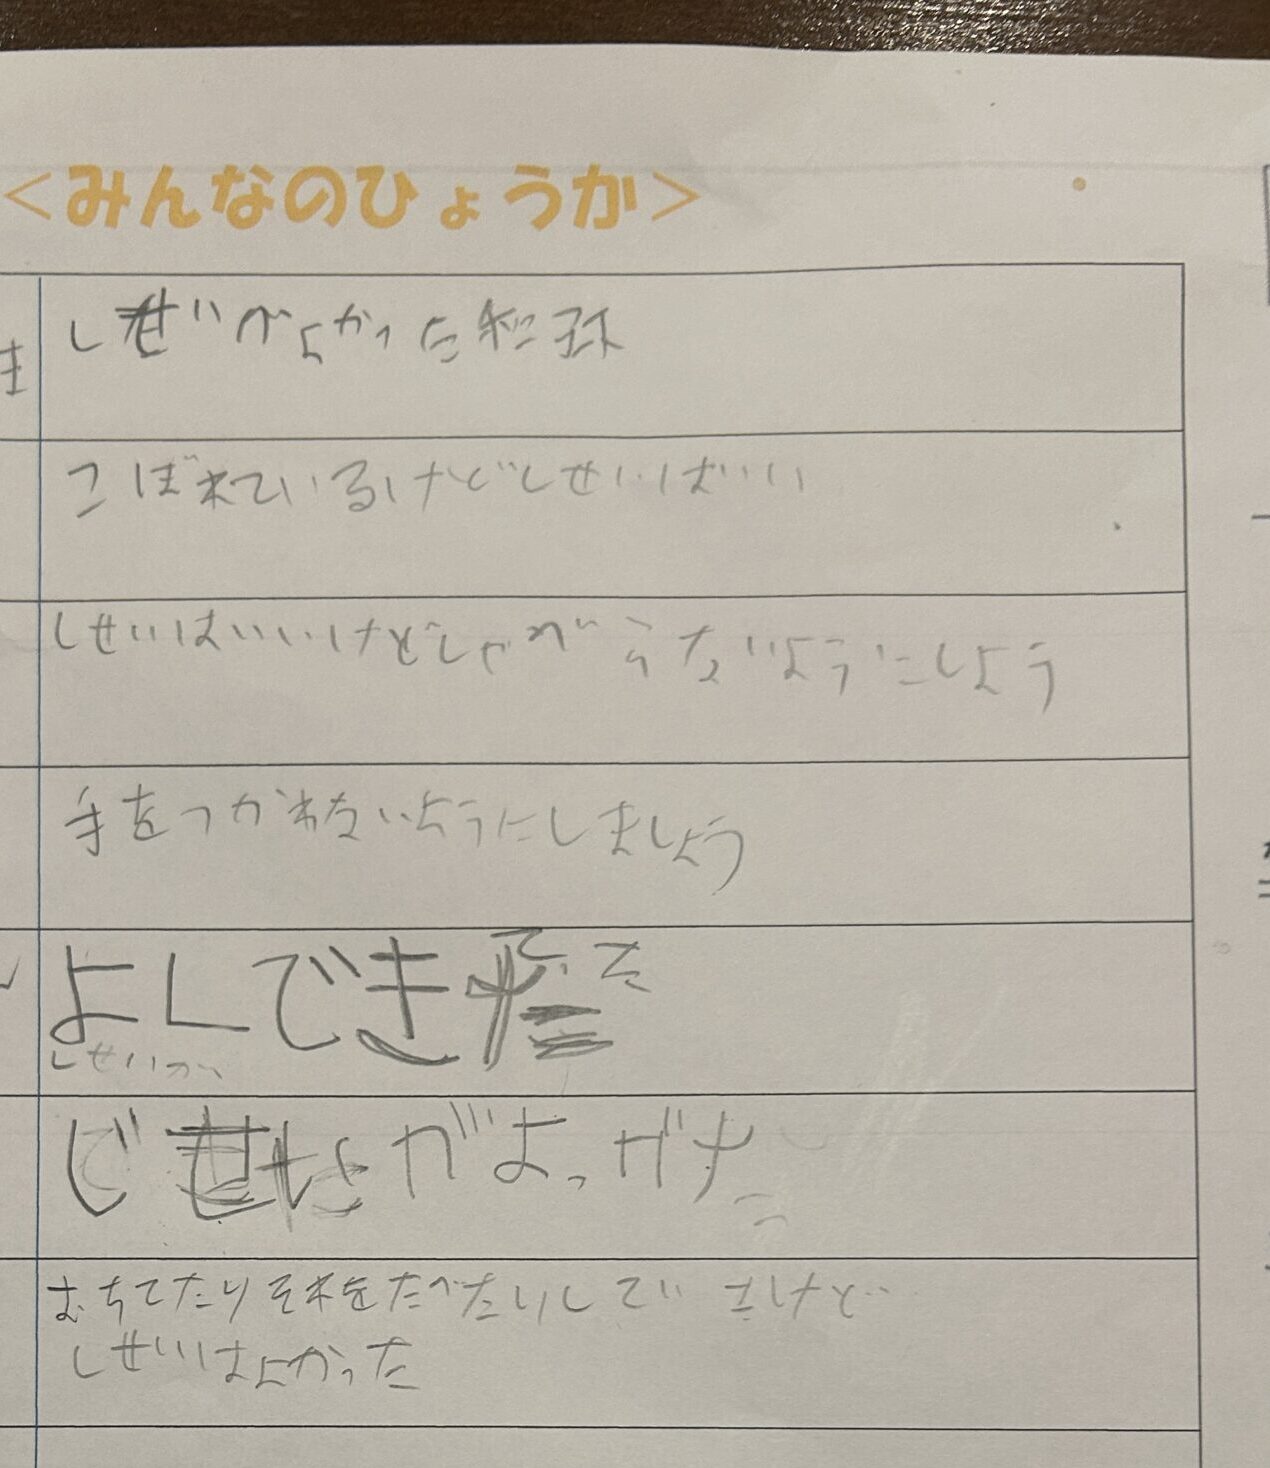 <みんなのひょうか>
しせいがよかった
こぼれているけどしせいはいい
しせいはいいけどしゃがらないようにしよう
手をつかわないようにしましょう
よくできた
しせいが
がよっがた
おちてたりそれをたべたりしてたけど
しせいはよかった